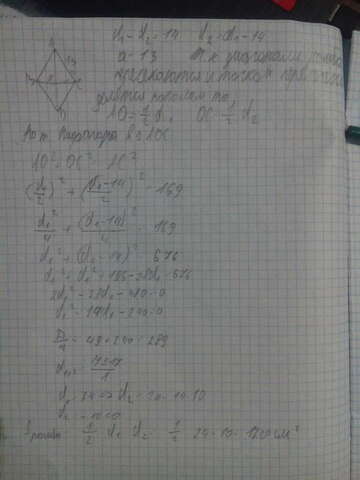 d₁-d₂=14 d₂=d₁-14
a=13 Т.к диагонали ромба
пересекаются и точкой пересечения
делятся пополам то
AO=½d₁ OC=½d₂
По т. Пифагора
AO²+OC²=AC²
(d₁/2)²+((d₁-14)/2)²=169
d₁²/4+(d₁-14)²/4=169
d₁²+(d₁-14)²=676
d₁²+d₁²+196-28d₁=676
2d₁²-28d₁-480=0
d₁²-14d₁-240=0
D/4=49+240=289
d₁,₂=(7±17)/1
d₁=24 => d₂=24-14=10
d₂=-10<0
Sромба=½ d₁ d₂=½ 24·10=120 см²